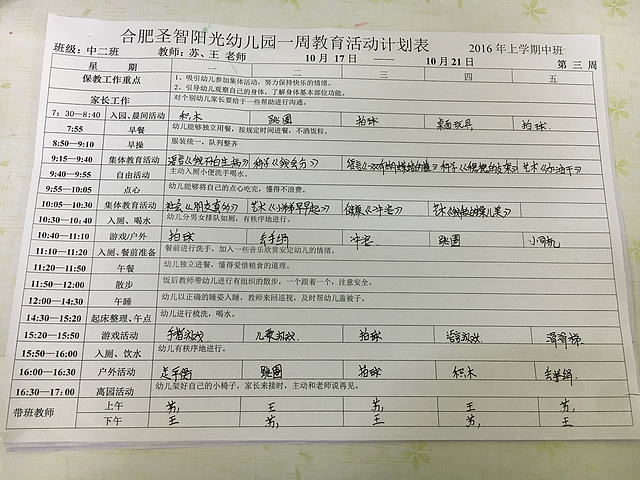 合肥圣智阳光幼儿园一周教育活动计划表
班级：中二班 教师：苏、王 老师 10 月 17 日 —— 10 月 21 日 2016 年上学期中班
星 期 一 二 三 四 五 第 三 周
保教工作重点 1、吸引幼儿参加集体活动，努力保持快乐的情绪。
2、引导幼儿观察自己的身体，了解身体基本部位功能。
家长工作 对个别幼儿家长要给于一些帮助进行沟通。
7：30—8:40 入园、晨间活动 积木 跳圈 拍球 桌面玩具 拍球
7:55 早餐 幼儿能够独立用餐，按规定时间进餐，不洒饭粒。
8:50—9:10 早操 服装统一，队列整齐
9:15—9:40 集体教育活动 语言 科学 语言 科学 艺术
9:40—9:55 自由活动 主动入厕小便洗手喝水。
9:55—10:05 点心 幼儿能够将自己的点心吃完，懂得不浪费。
10:05—10:30 集体教育活动 社会《朋友真的》 艺术《小海早早起》 健康《冲密》 艺术
10:30—10:40 入厕、喝水 幼儿分男女排队如厕，有秩序地进行。
10:40—11:10 游戏/户外 拍球 跳圈
11:10—11:20 入厕、餐前准备 餐前进行洗手，加入一些音乐欣赏安定幼儿的情绪。
11:20—11:50 午餐 幼儿独立进餐，懂得爱惜粮食的道理。
11:50—12:00 散步 饭后教师带幼儿进行有组织的散步，一个跟着一个，注意安全。
12:00—14:30 午睡 幼儿以正确的睡姿入睡，教师来回巡视，及时帮幼儿盖被子。
14:30—15:20 起床整理、午点 幼儿进行梳洗，喝水。
15:20—15:50 游戏活动 手指游戏 儿歌游戏 拍球 语言游戏 滑滑梯
15:50—16:00 入厕、饮水 幼儿有秩序地进行。
16:00—16:30 户外活动 走平衡 跳圈 拍球 积木
16:30—17:00 离园活动 幼儿架好自己的小椅子，家长来接时，主动和老师说再见。
带班教师 上午 苏， 王 苏， 王 苏，
下午 王 苏， 王 苏， 王